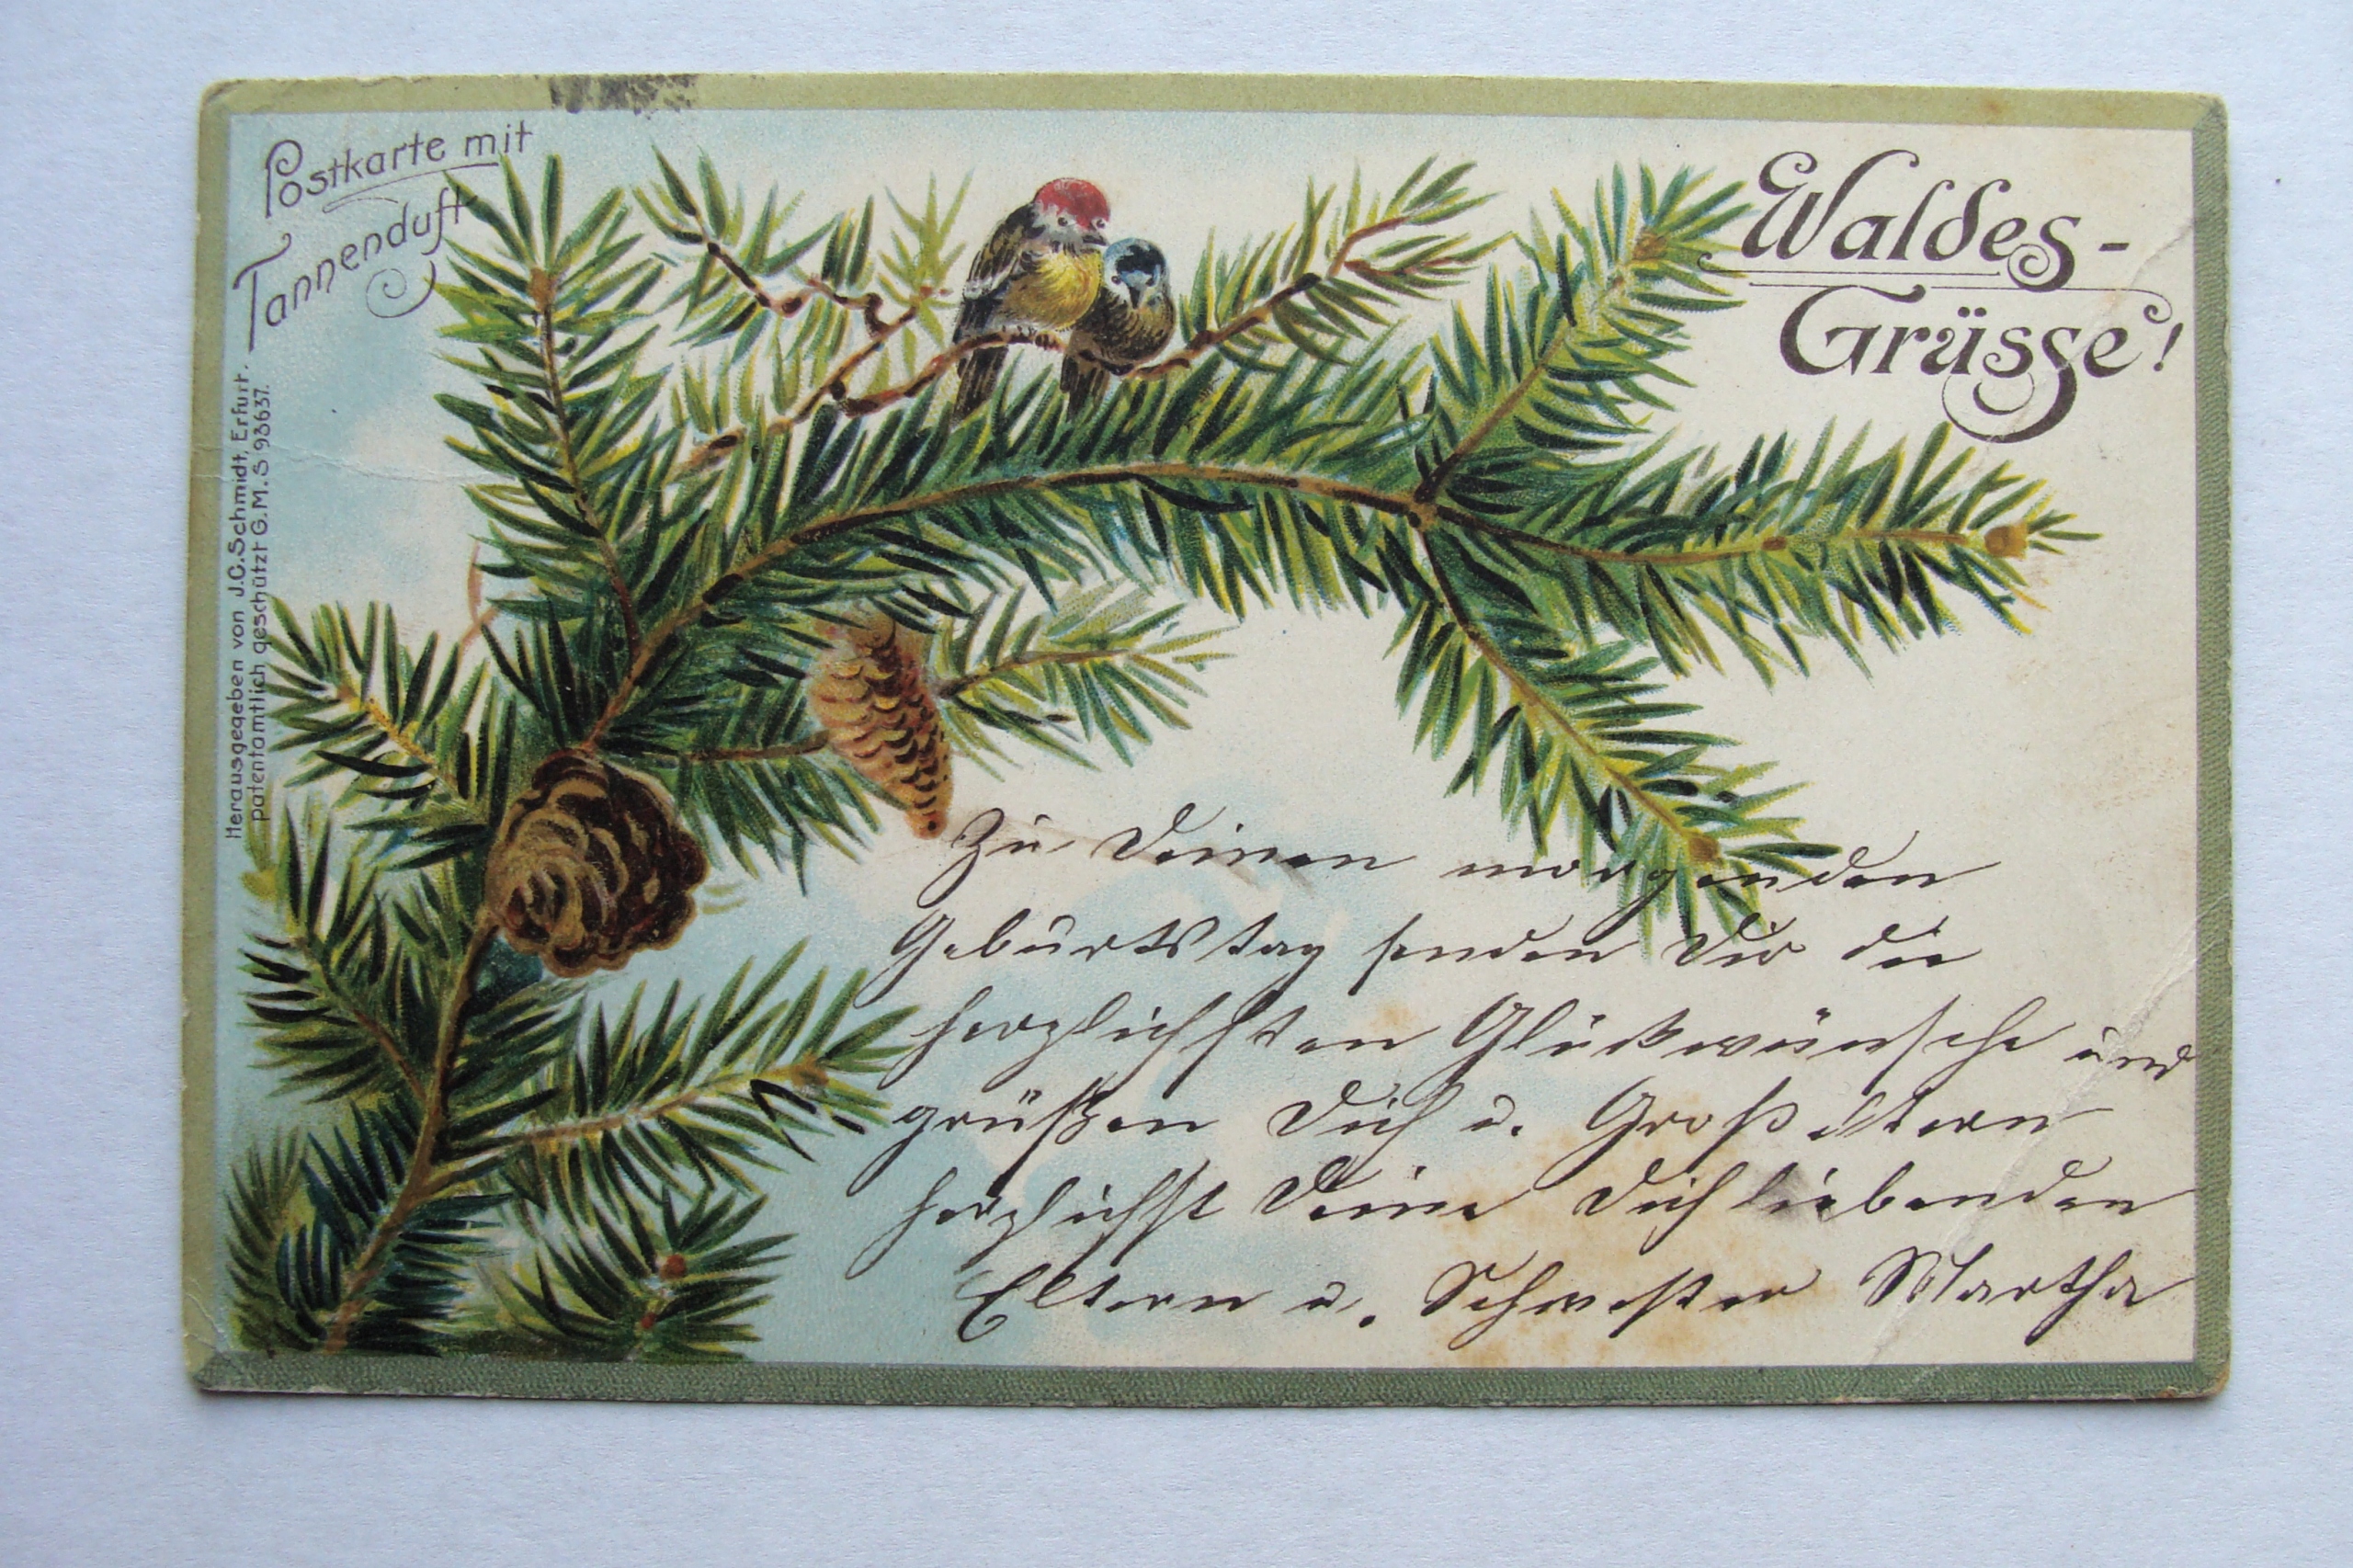 Postkarte mit
Tannenduft
Waldes-
Grüsse!
Herausgegeben von J.C.Schmidt, Erfurt.
patentamtlich geschützt G.M.S 93637.
Zu Deinen morgenden
Geburtstag senden Dir die
herzlichsten Glückwünsche und
grüßen Dich u. Großeltern
herzlichst Deine Dich liebenden
Eltern u. Schwester Martha